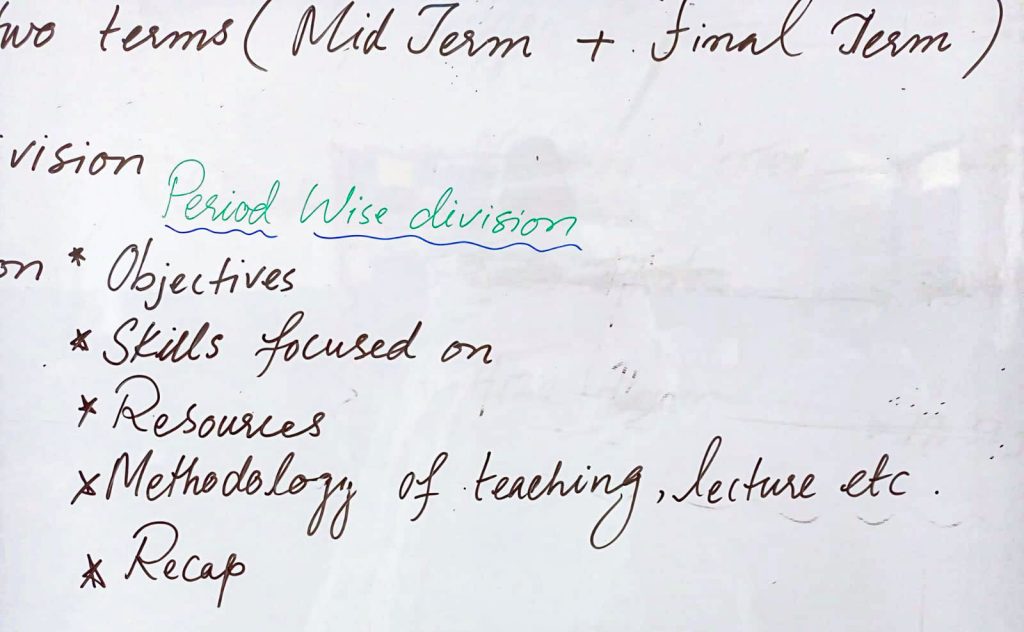 two terms ( Mid Term + final Term )
vision
Period Wise division
on * Objectives
* Skills focused on
* Resources
* Methodology of teaching, lecture etc.
* Recap